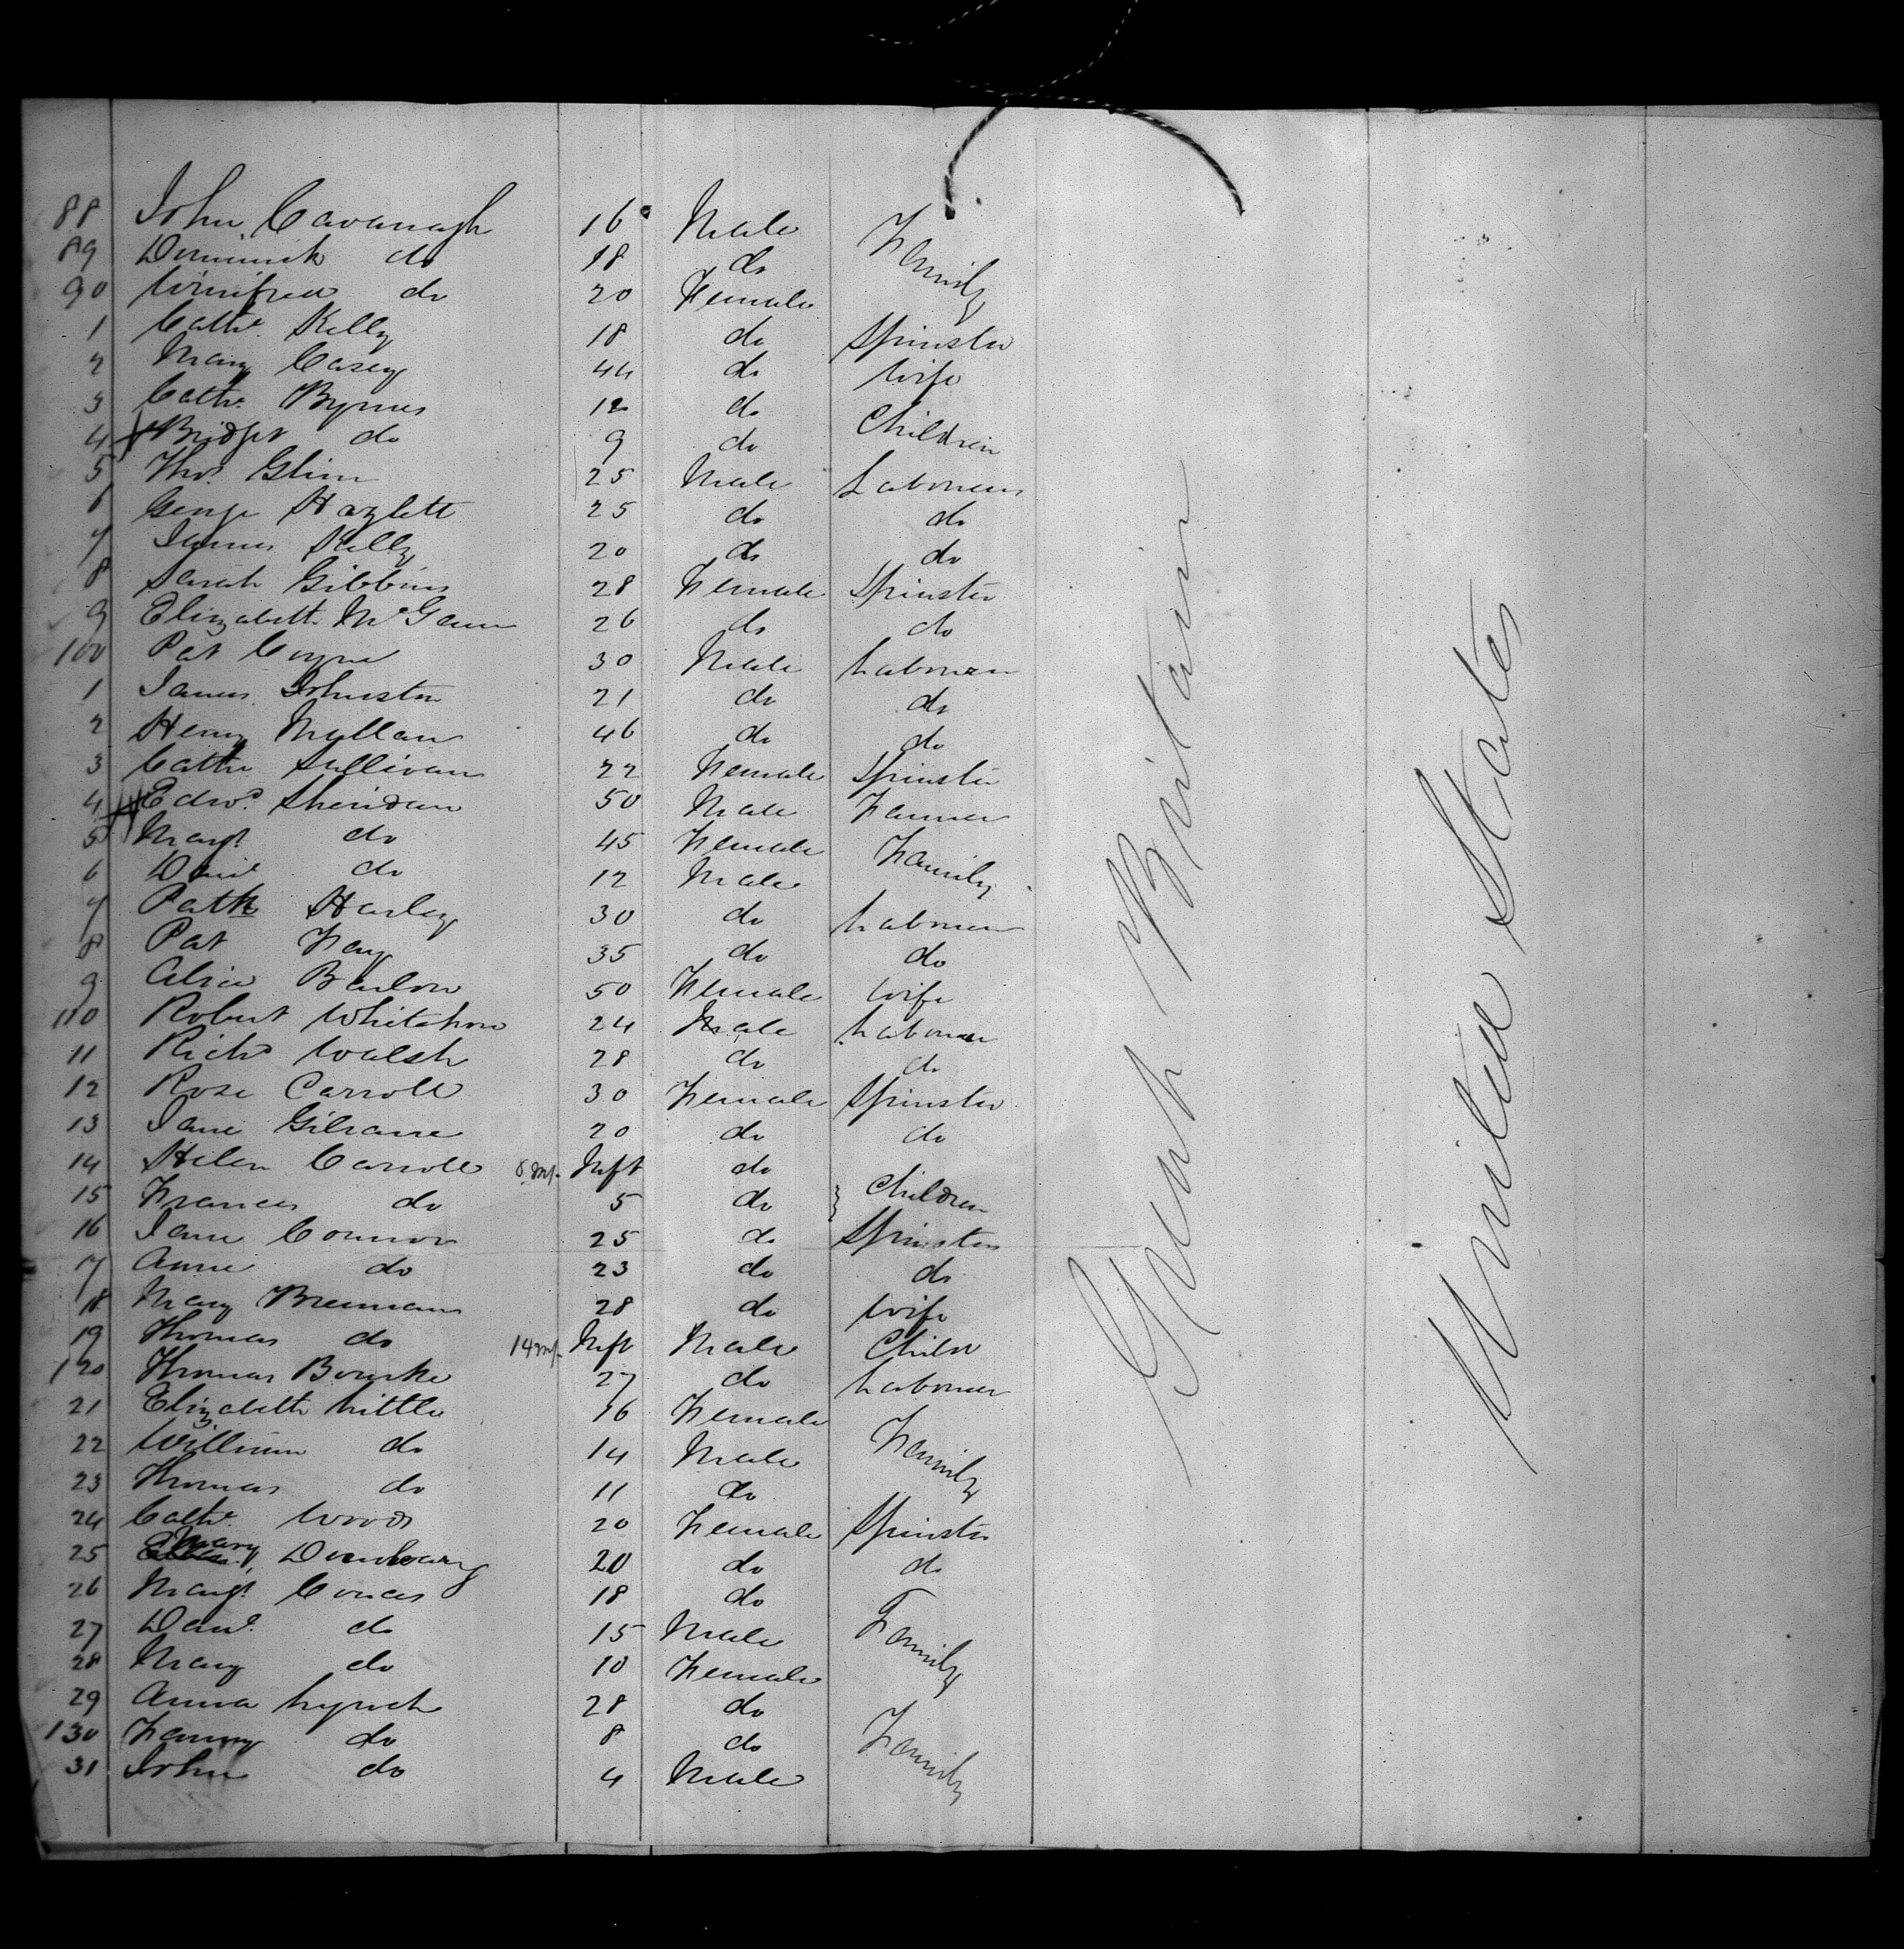 88 John Cavanagh 16 Male Family
89 Dominick do 18 do
90 Winifred do 20 Female
1 Cathe. Kelly 18 do Spinster
2 Mary Casey 44 do Wife
3 Cathe. Byrnes 12 do Children
4 Bridget do 9 do
5 Thos. Glinn 25 Male Labourer
6 George Hazlett 25 do do
7 James Kelly 20 do do
8 Sarah Gibbins 28 Female Spinster
9 Elizabeth McGann 26 do do
100 Pat Coyne 30 Male Labourer
1 James Johnston 21 do do
2 Henry Mullan 46 do do
3 Cathe Sullivan 22 Female Spinster
4 Edwd. Sheridan 50 Male Farmer
5 Margt do 45 Female Family
6 Danl do 12 Male
7 Patk Hurley 30 do Labourer
8 Pat Fay 35 do do
9 Alice Barlow 50 Female Wife
110 Robert 24 Male Labourer
11 Richd Walsh 28 do do
12 Rose Carroll 30 Female Spinster
13 Jane 20 do do
14 Helen Carroll 8 mos. Inft do Children
15 Frances do 5 do
16 Jane Connor 25 do Spinster
17 Anne do 23 do do
18 Mary Brennan 28 do Wife
19 Thomas do 14 mos. Inft Male Child
120 Thomas Bourke 27 do Labourer
21 Elizabeth Little 16 Female Family
22 William do 14 Male
23 Thomas do 11 do
24 Cathe. Wood 20 Female Spinster
25 Mary 20 do do
26 Margt 18 do Family
27 Danl. do 15 Male
28 Mary do 10 Female
29 Anna Lynch 28 do Family
130 Fanny do 8 do
31 John do 4 Male
Great Britain
United States